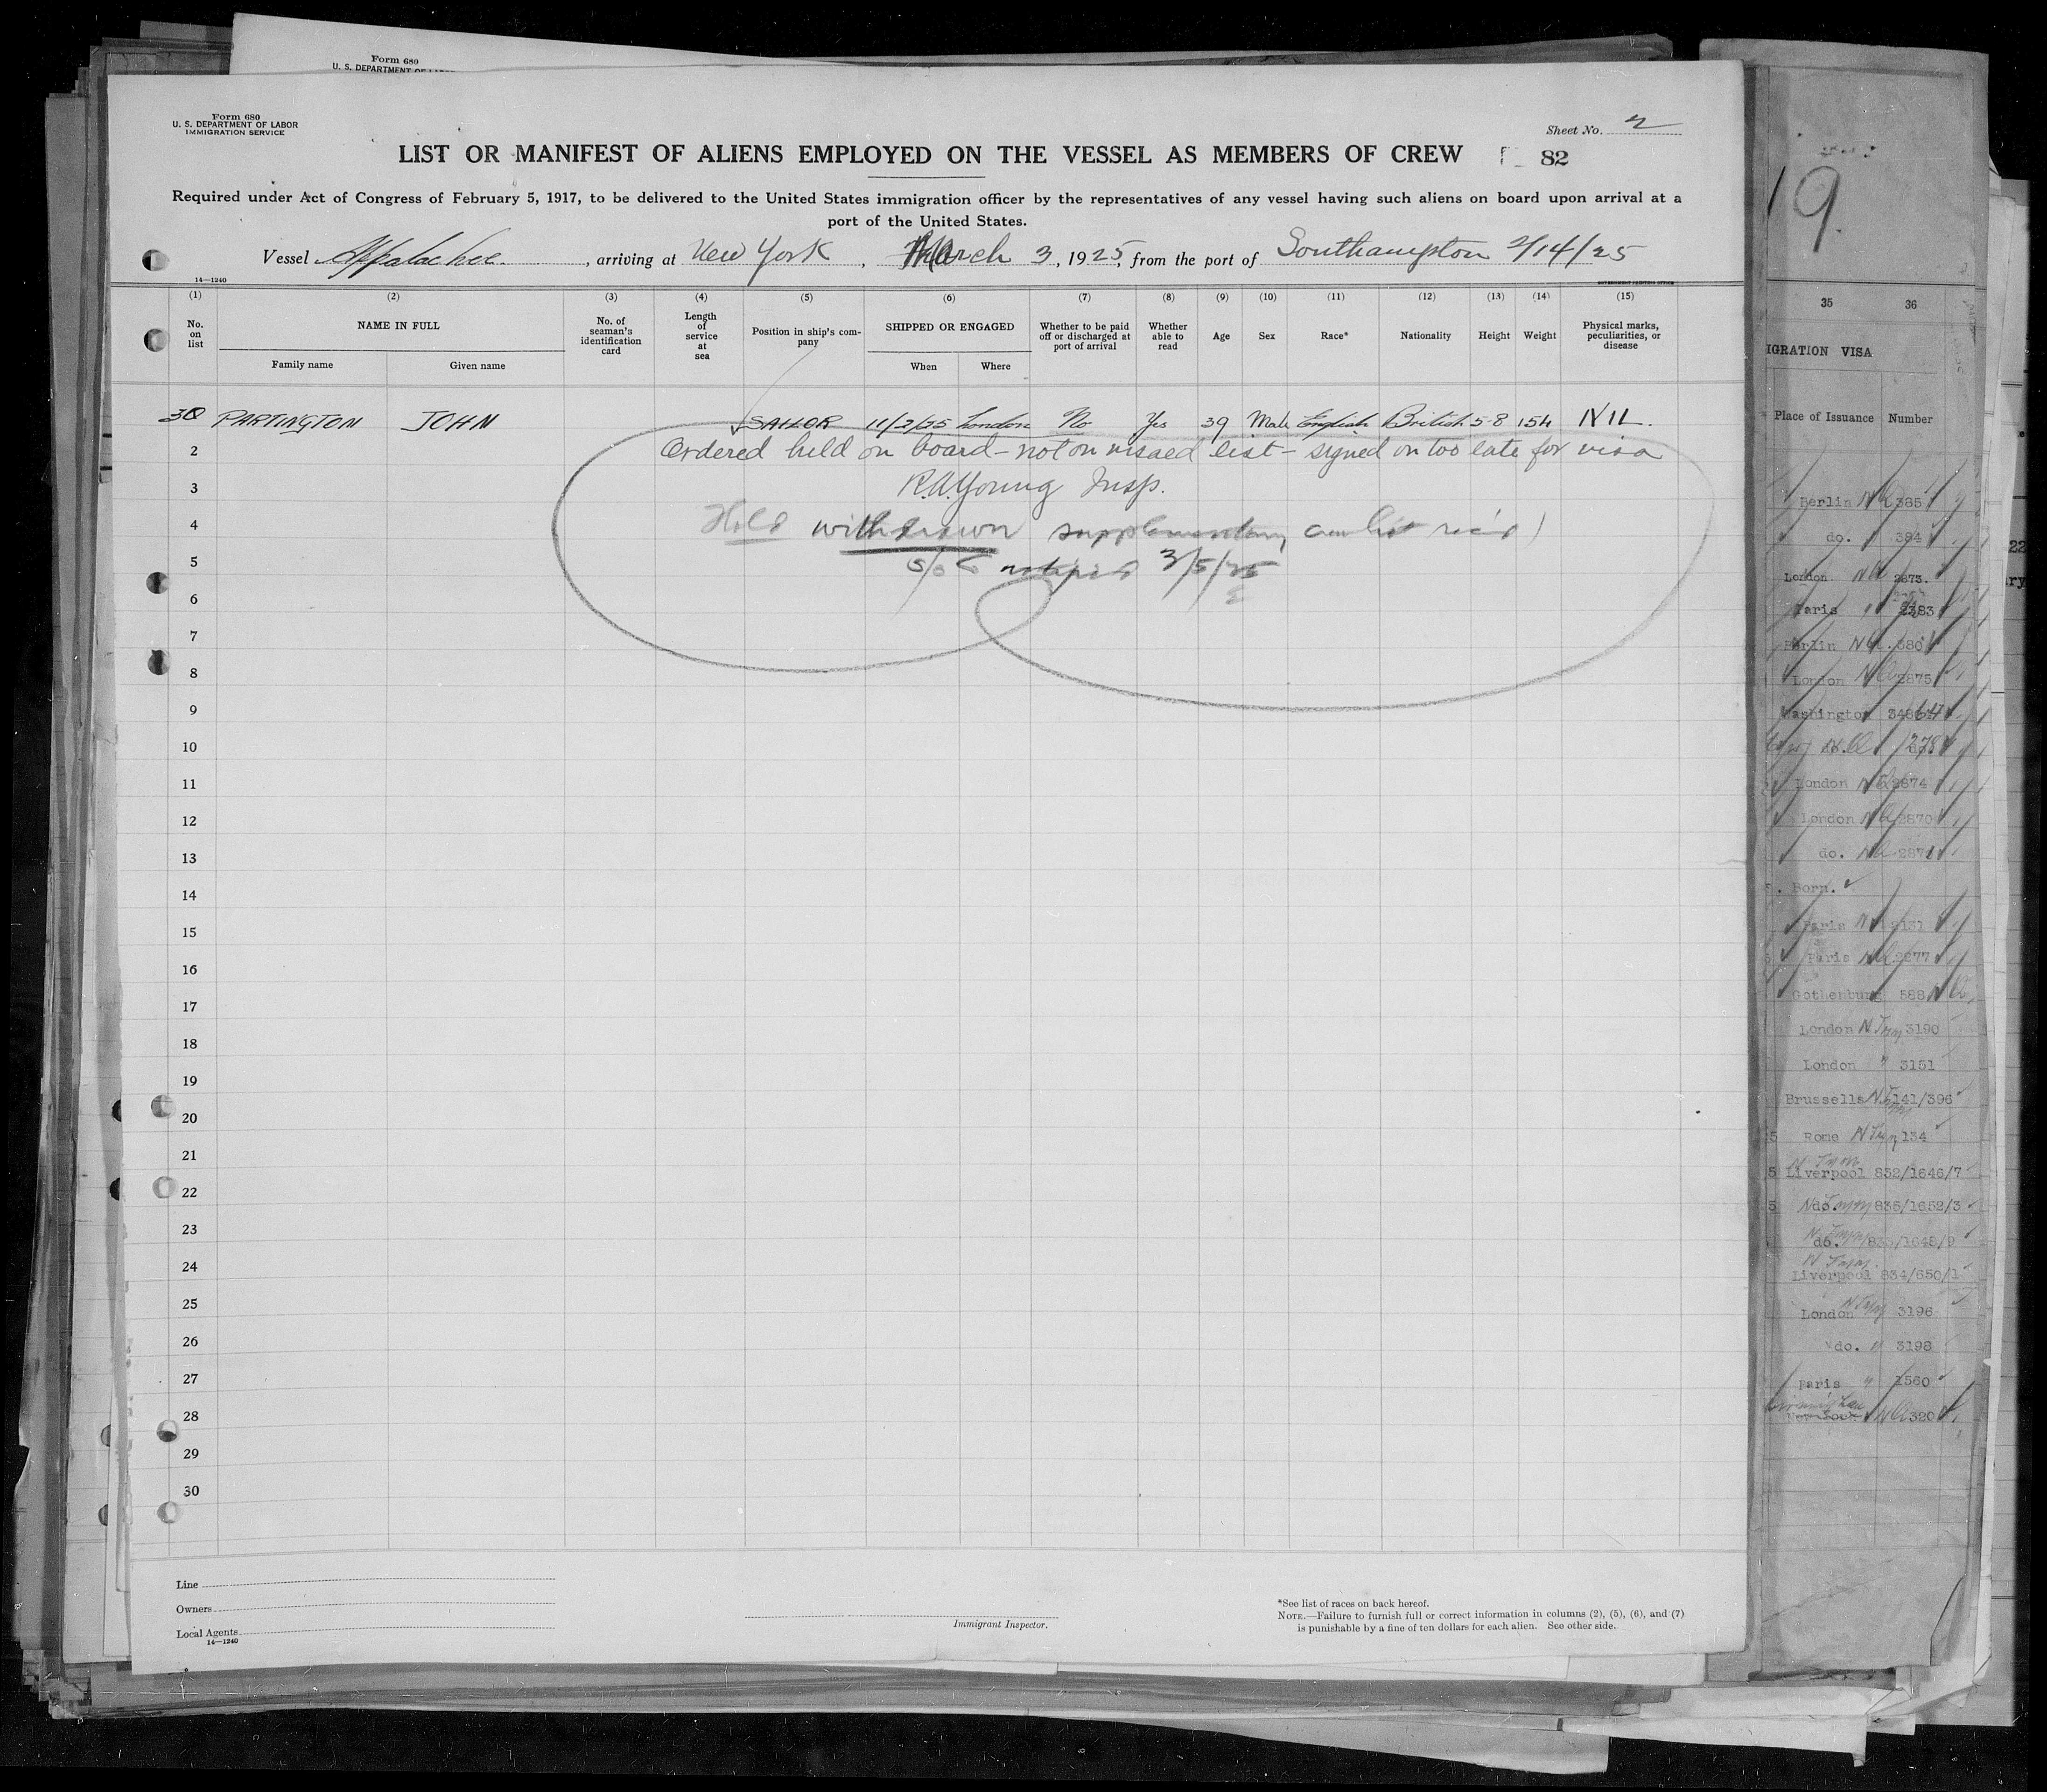 Form 680
U. S. DEPARTMENT OF
Form 680
U. S. DEPARTMENT OF LABOR
IMMIGRATION SERVICE
Sheet No. 2
LIST OR MANIFEST OF ALIENS EMPLOYED ON THE VESSEL AS MEMBERS OF CREW 82
Required under Act of Congress of February 5, 1917, to be delivered to the United States immigration officer by the representatives of any vessel having such aliens on board upon arrival at a
port of the United States.
Vessel Appalachee, arriving at New York, March 3, 1925, from the port of Southampton 2/14/25
14—1240
(1) (2) (3) (4) (5) (6) (7) (8) (9) (10) (11) (12) (13) (14) (15)
No. on list
NAME IN FULL
Family name Given name
No. of seaman's identification card
Length of service at sea
Position in ship's company
SHIPPED OR ENGAGED
When Where
Whether to be paid off or discharged at port of arrival
Whether able to read
Age
Sex
Race*
Nationality
Height
Weight
Physical marks, peculiarities, or disease
30 PARTINGTON JOHN SAILOR 11/2/25 London No Yes 39 Male English British 5-8 154 NIL.
2 Ordered held on board - not on visaed list - signed on too late for visa
3 R.A. Young Insp.
4 Held withdrawn supplementary crew list rec'd
5 notified 3/5/25
6
7
8
9
10
11
12
13
14
15
16
17
18
19
20
21
22
23
24
25
26
27
28
29
30
Line
Owners
Local Agents
14—1240
Immigrant Inspector.
*See list of races on back hereof.
NOTE.—Failure to furnish full or correct information in columns (2), (5), (6), and (7)
is punishable by a fine of ten dollars for each alien. See other side.
19.
35 36
IGRATION VISA
Place of Issuance Number
Berlin 385
do. 384
London 2873.
Paris 2383
Berlin 386
London 2875
Washington
do. 278
London 2874
London 2870
do. 2871
Born.
Paris 131
Paris 2277
Gothenburg 588
London 3190
London " 3151
Brussells 141/396
Rome 134
Liverpool 832/1646/7
do. 835/1652/3
do. /1648/9
Liverpool 834/650/1
London 3196
do. " 3198
Paris " 1560
320